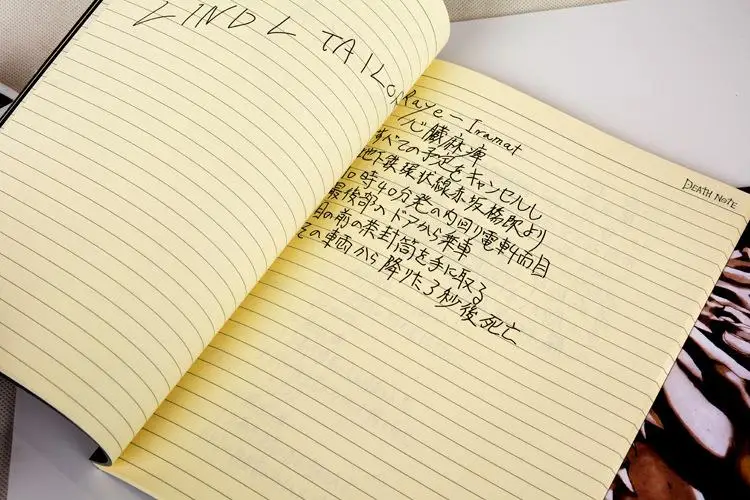 LIND L TAILOR
Raye - Iramat
心臓麻痺
すべての予定をキャンセルし
地下鉄環状線赤坂橋駅より
10時40分発の内回り電車4両目
最後部のドアから乗車
目の前の茶封筒を手に取る
その車両から降りた3秒後死亡
DEATH NOTE